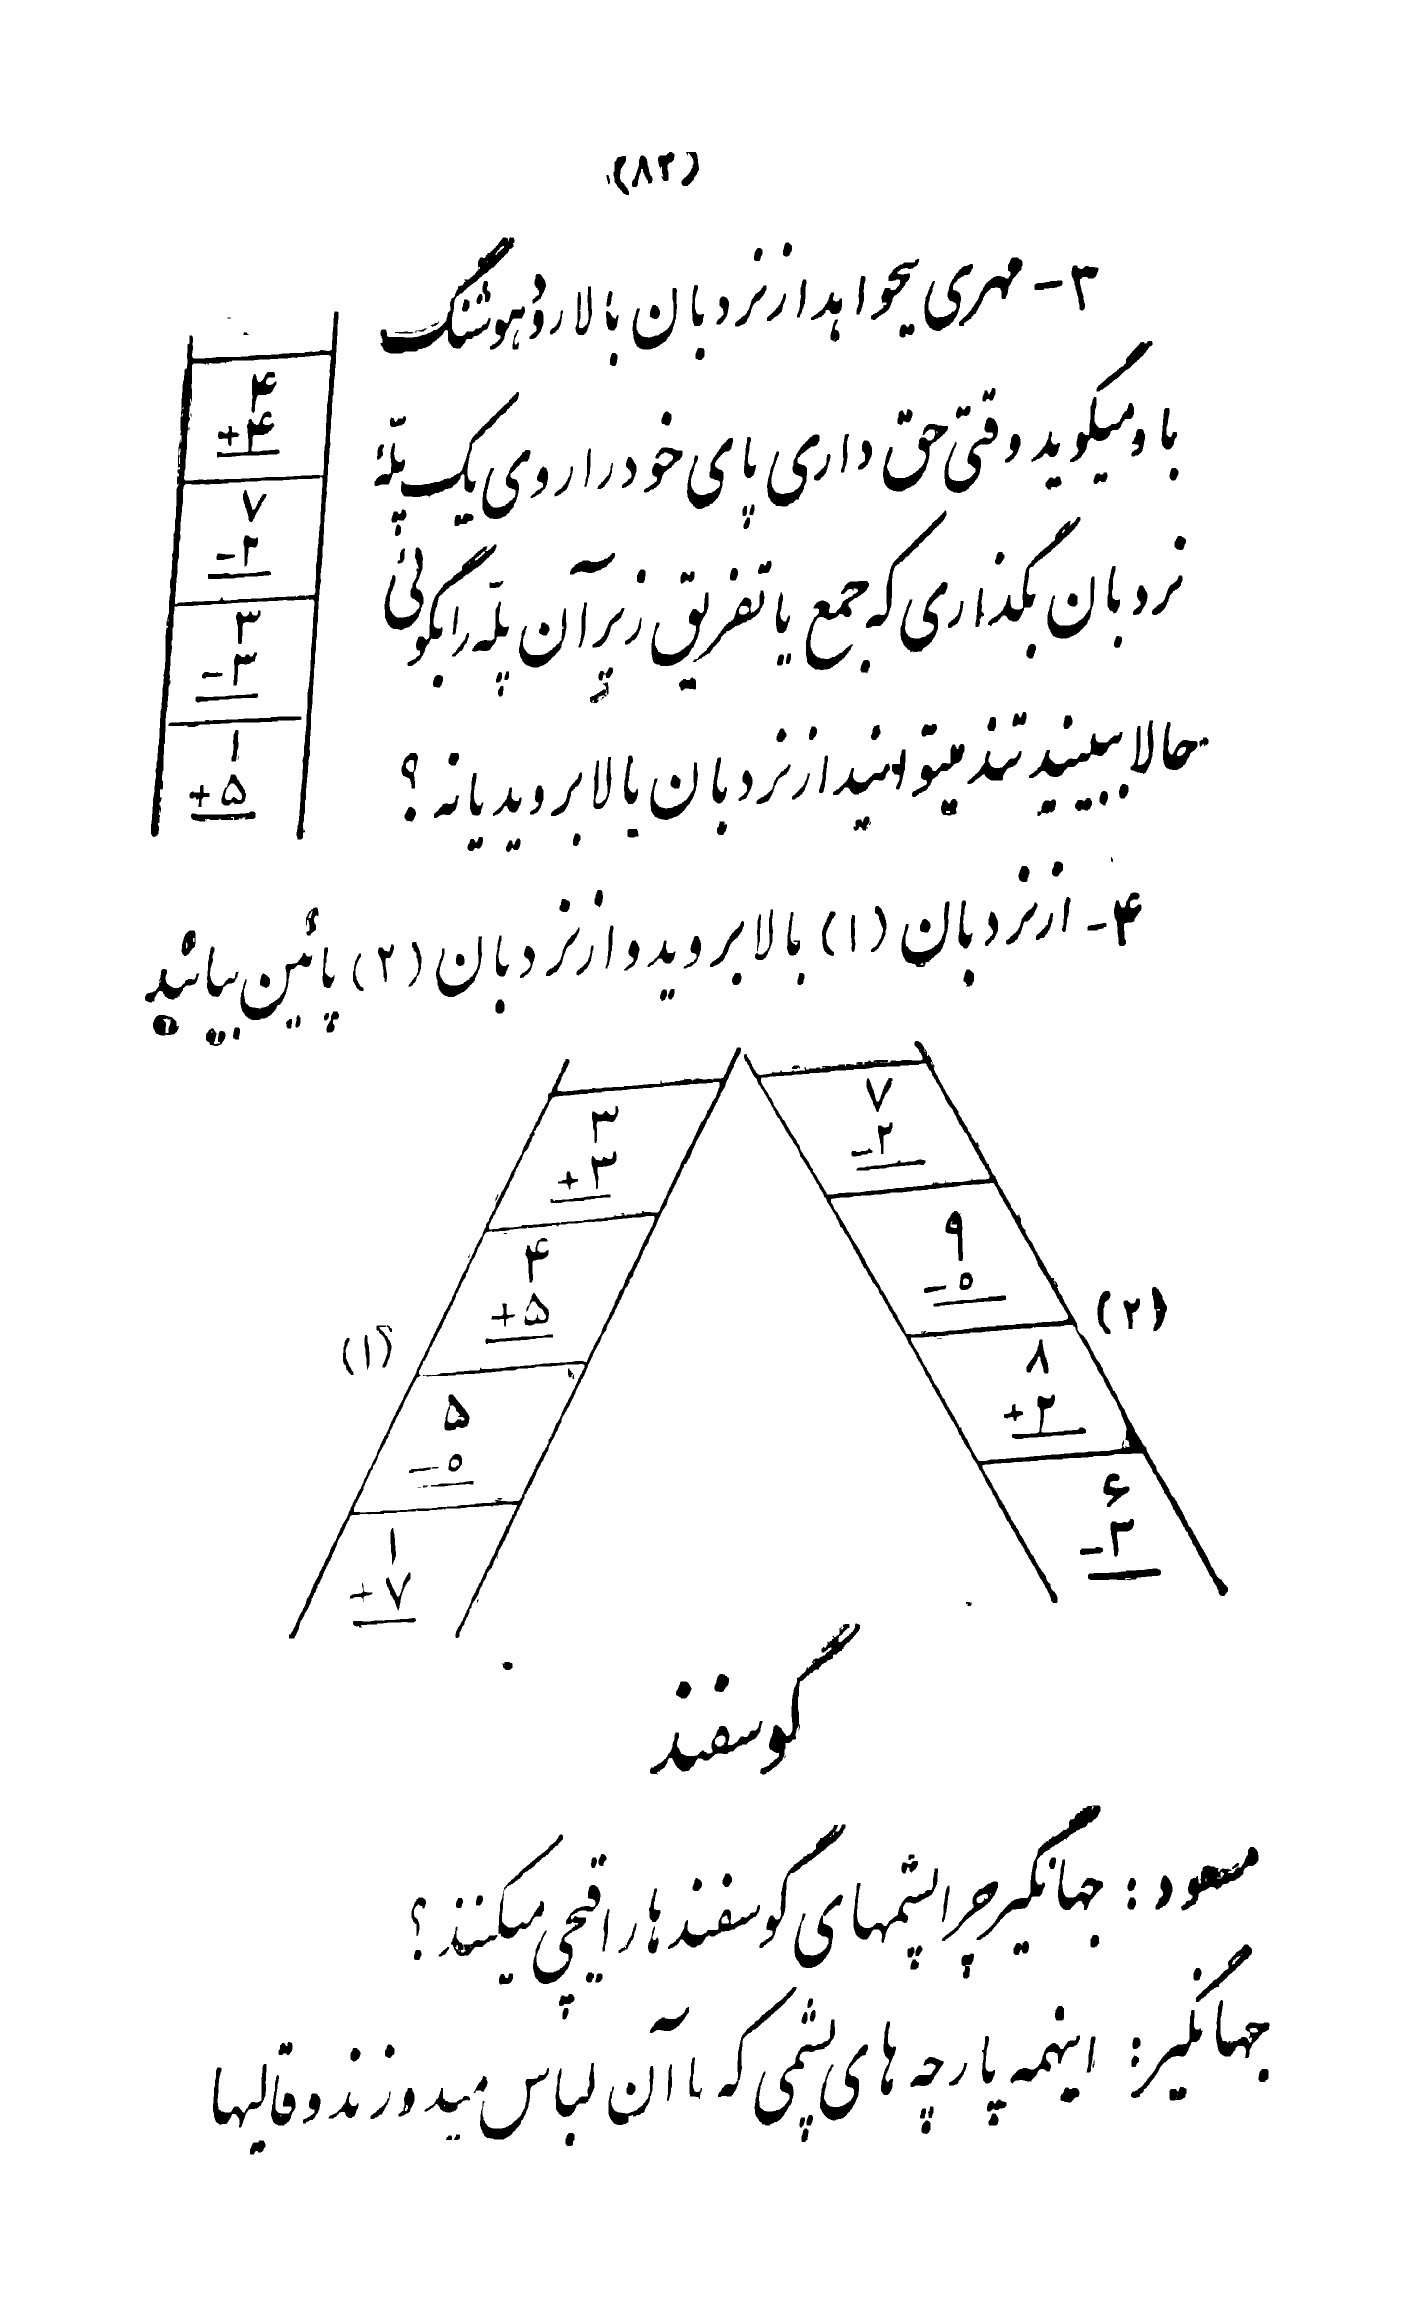 (۸۲)
۳- مهری میخواهد از نردبان بالا رود هوشنگ
باو میگوید وقتی حق داری پای خود را روی یک پلهٔ
نردبان بگذاری که جمع یا تفریق زیر آن پلّه را بگوئی
حالا ببینید شما میتوانید از نردبان بالا بروید یا نه؟
۴
+۴
۷
-۲
۳
-۳
۱
+۵
۴- از نردبان (۱) بالا بروید و از نردبان (۲) پائین بیائید
(۱)
۳
+۳
۴
+۵
۵
-۰
۱
+۷
(۲)
۷
-۲
۹
-۰
۸
+۲
۶
-۳
گوسفند
مسعود: جهانگیر چرا پشمهای گوسفندها را قیچی میکنند؟
جهانگیر: اینهمه پارچه های پشمی که با آن لباس میدوزند و قالیها